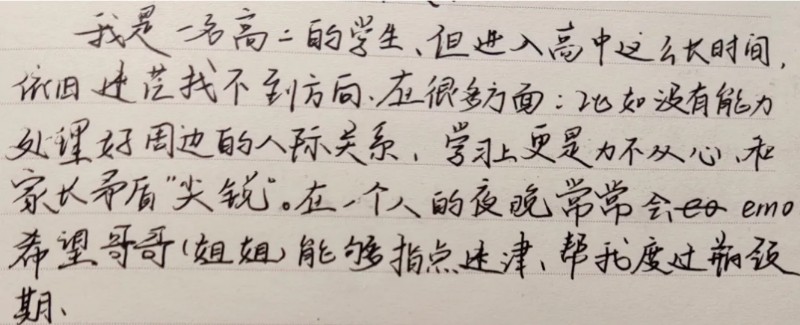 我是一名高二的学生、但进入高中这么长时间，
依旧迷茫找不到方向、在很多方面：比如没有能力
处理好周边的人际关系，学习上更是力不从心、和
家长矛盾“尖锐”。在一个人的夜晚常常会emo
希望哥哥（姐姐）能够指点迷津、帮我度过瓶颈
期、